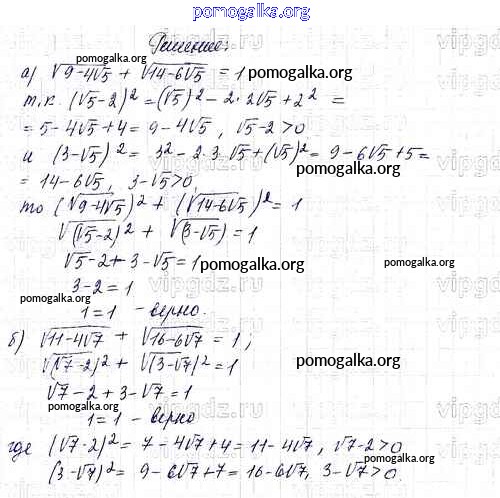 pomogalka.org
Решение:
а) √(9-4√5) + √(14-6√5) = 1 pomogalka.org
т.к. (√5-2)² = (√5)² - 2·2√5 + 2² =
= 5-4√5+4 = 9-4√5, √5-2>0
pomogalka.org
и (3-√5)² = 3² - 2·3·√5 + (√5)² = 9-6√5+5 =
= 14-6√5, 3-√5>0,
pomogalka.org
то (√(9-4√5))² + (√(14-6√5))² = 1
√(√5-2)² + √(3-√5) = 1
√5-2+3-√5 = 1 pomogalka.org
3-2 = 1
pomogalka.org
1=1 - верно.
pomogalka.org
б) √(11-4√7) + √(16-6√7) = 1;
√(√7-2)² + √(3-√7)² = 1
pomogalka.org
√7-2+3-√7 = 1
pomogalka.org
1=1 - верно
где (√7-2)² = 7-4√7+4 = 11-4√7, √7-2>0
(3-√7)² = 9-6√7+7 = 16-6√7, 3-√7>0.
pomogalka.org